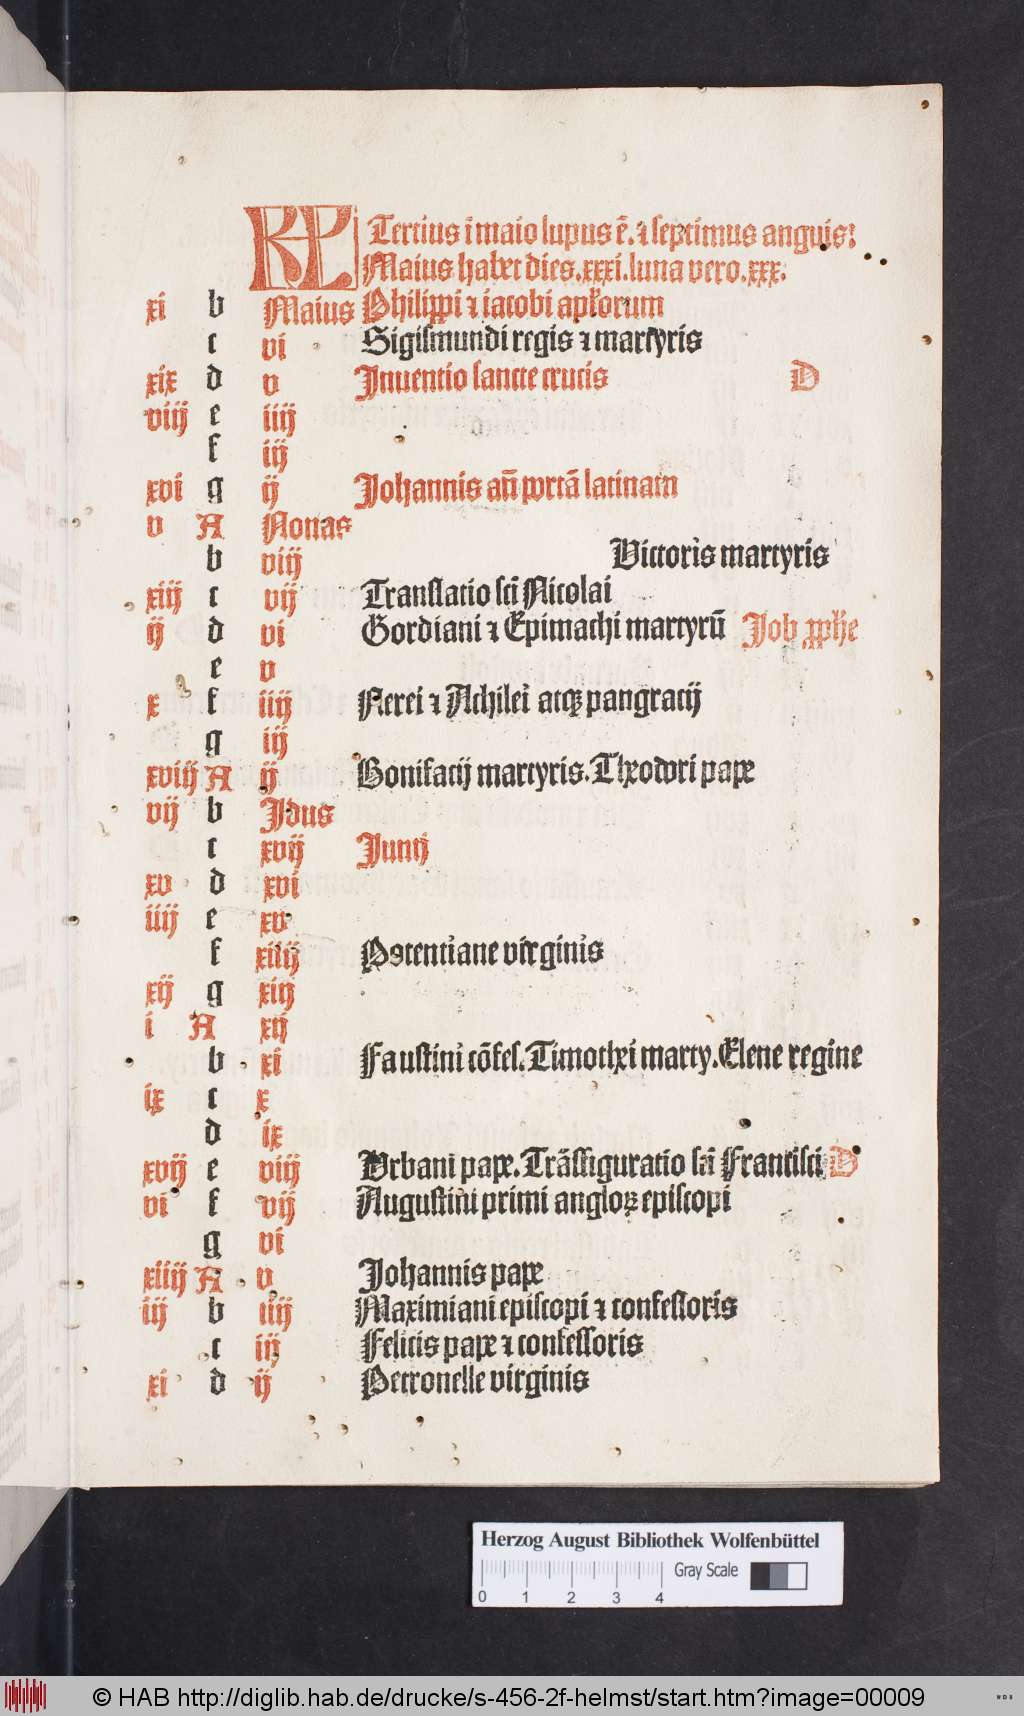 KL Tercius i maio lupus ē. ⁊ septimus anguis:
Maius habet dies. xxxi. luna vero. xxx.
xi b Maius Philippi ⁊ iacobi apł'orum
c vi Sigismundi regis ⁊ martyris
xix d v Inuentio sancte crucis D
viij e iiij
f iij
xvi g ij Johannis añ portā latinam
v A Nonas
b viij Victoris martyris
xiij c vij Translatio scī Nicolai
ij d vi Gordiani ⁊ Epimachi martyrū Job ꝓphe
e v
x f iiij Nerei ⁊ Achilei atqꝫ pangracij
g iij
xviij A ij Bonifacij martyris. Theodori pape
vij b Idus
c xvij Junij
xv d xvi
iiij e xv
f xiiij Potentiane virginis
xij g xiij
i A xij
b xi Faustini cōfes. Timothei marty. Elene regine
ix c x
d ix
xvij e viij Vrbani pape. Trāsfiguratio scī Francisci D
vi f vij Augustini primi angloꝝ episcopi
g vi
xiiij A v Johannis pape
iij b iiij Maximiani episcopi ⁊ confessoris
c iij Felicis pape ⁊ confessoris
xi d ij Petronelle virginis
Herzog August Bibliothek Wolfenbüttel
0 1 2 3 4 Gray Scale
© HAB http://diglib.hab.de/drucke/s-456-2f-helmst/start.htm?image=00009